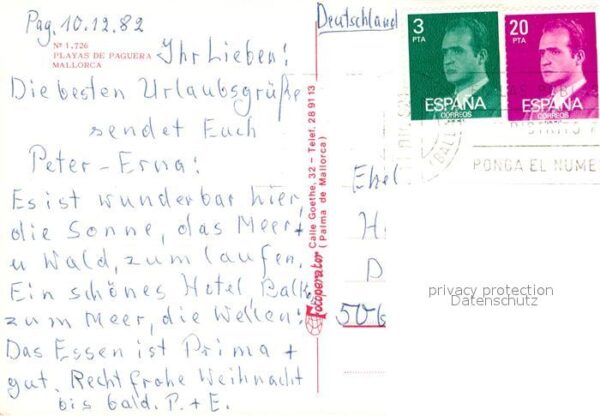 Pag. 10.12.82
Nº 1.726
PLAYAS DE PAGUERA
MALLORCA
Ihr Lieben!
Die besten Urlaubsgrüße
sendet Euch
Peter-Erna!
Es ist wunderbar hier,
die Sonne, das Meer +
u Wald, zum laufen.
Ein schönes Hotel, Balk.
zum Meer, die Wellen!
Das Essen ist Prima +
gut. Recht frohe Weihnacht
bis bald. P. + E.
Fotoperator Calle Goethe, 32 - Telef. 28 91 13
(Palma de Mallorca)
Deutschland
3
PTA
ESPAÑA
CORREOS
20
PTA
ESPAÑA
CORREOS
PONGA EL NUME
H
D
506
privacy protection
Datenschutz